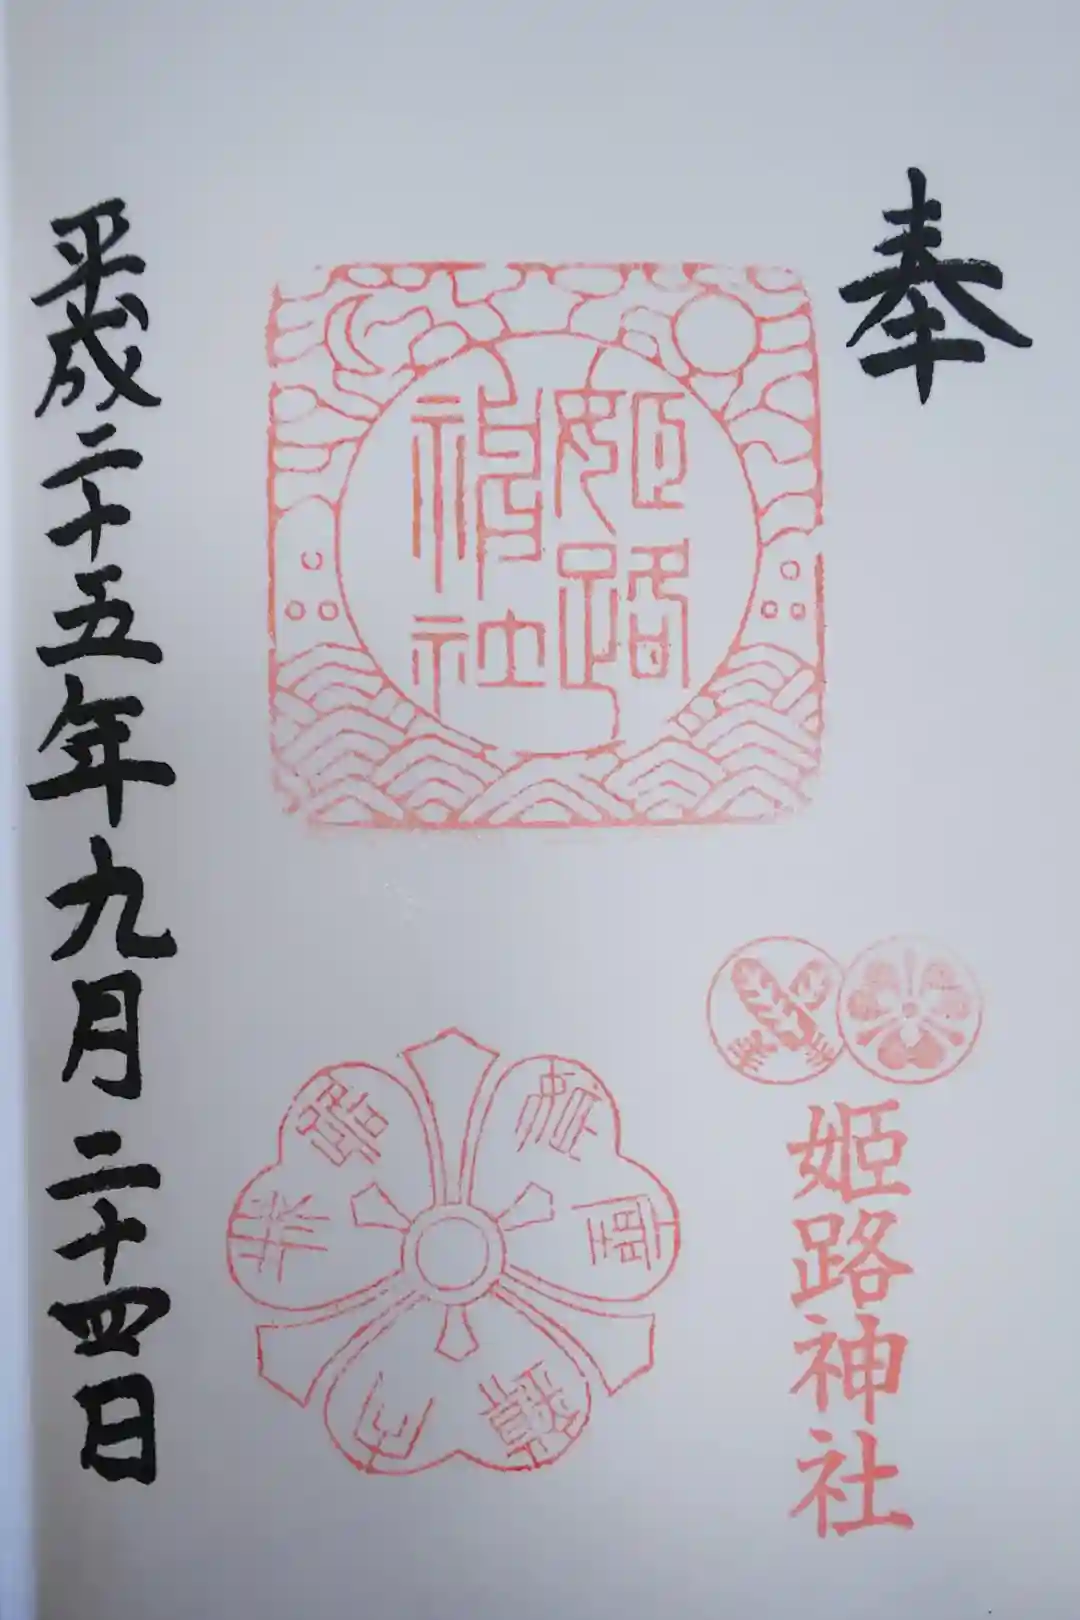 奉
姫路神社
姫路
神社
平成二十五年九月二十四日